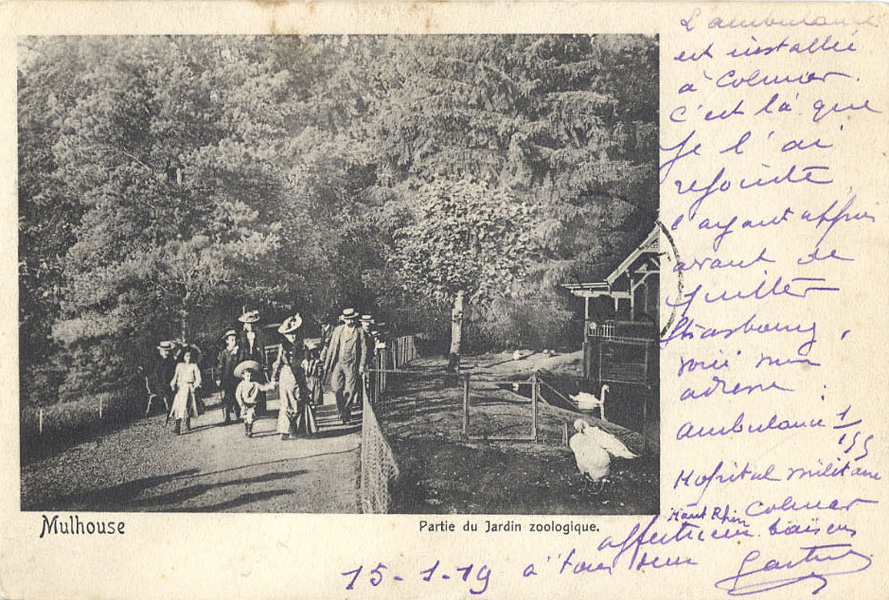 L'ambulance
est installée
à Colmar.
C'est là que
je l'ai
rejointe
l'ayant appris
avant de
quitter
Strasbourg.
voici mon
adresse :
Ambulance 1/155
Hopital militaire
Colmar
Haut Rhin
affectueux baisers
à tous deux
Gaston
15-1-19
Mulhouse
Partie du Jardin zoologique.